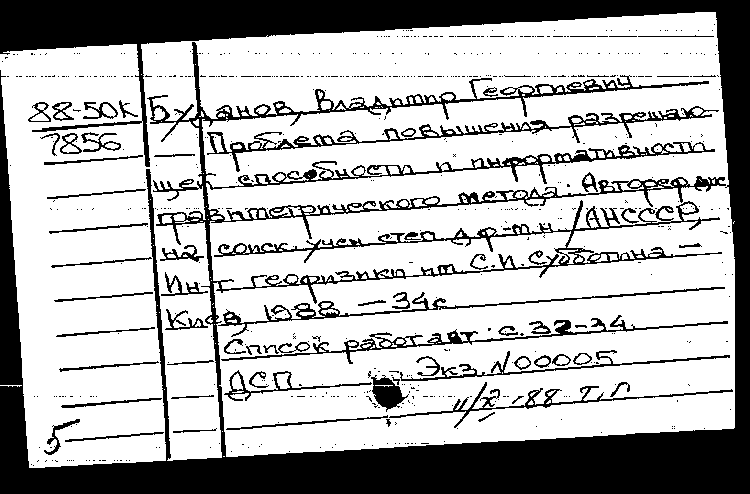 88-50К Буданов, Владимир Георгиевич.
7856 Проблема повышения разрешаю
щей способности и информативности
гравиметрического метода: Автореф дис
на соиск. учен степ д.ф-м.н. /АНСССР,
Ин-т геофизики им. С.И. Субботина. —
Киев, 1988. — 34с
Список работ авт: с. 32-34.
ДСП. Экз. N00005
11/X-88 Т.Г
5